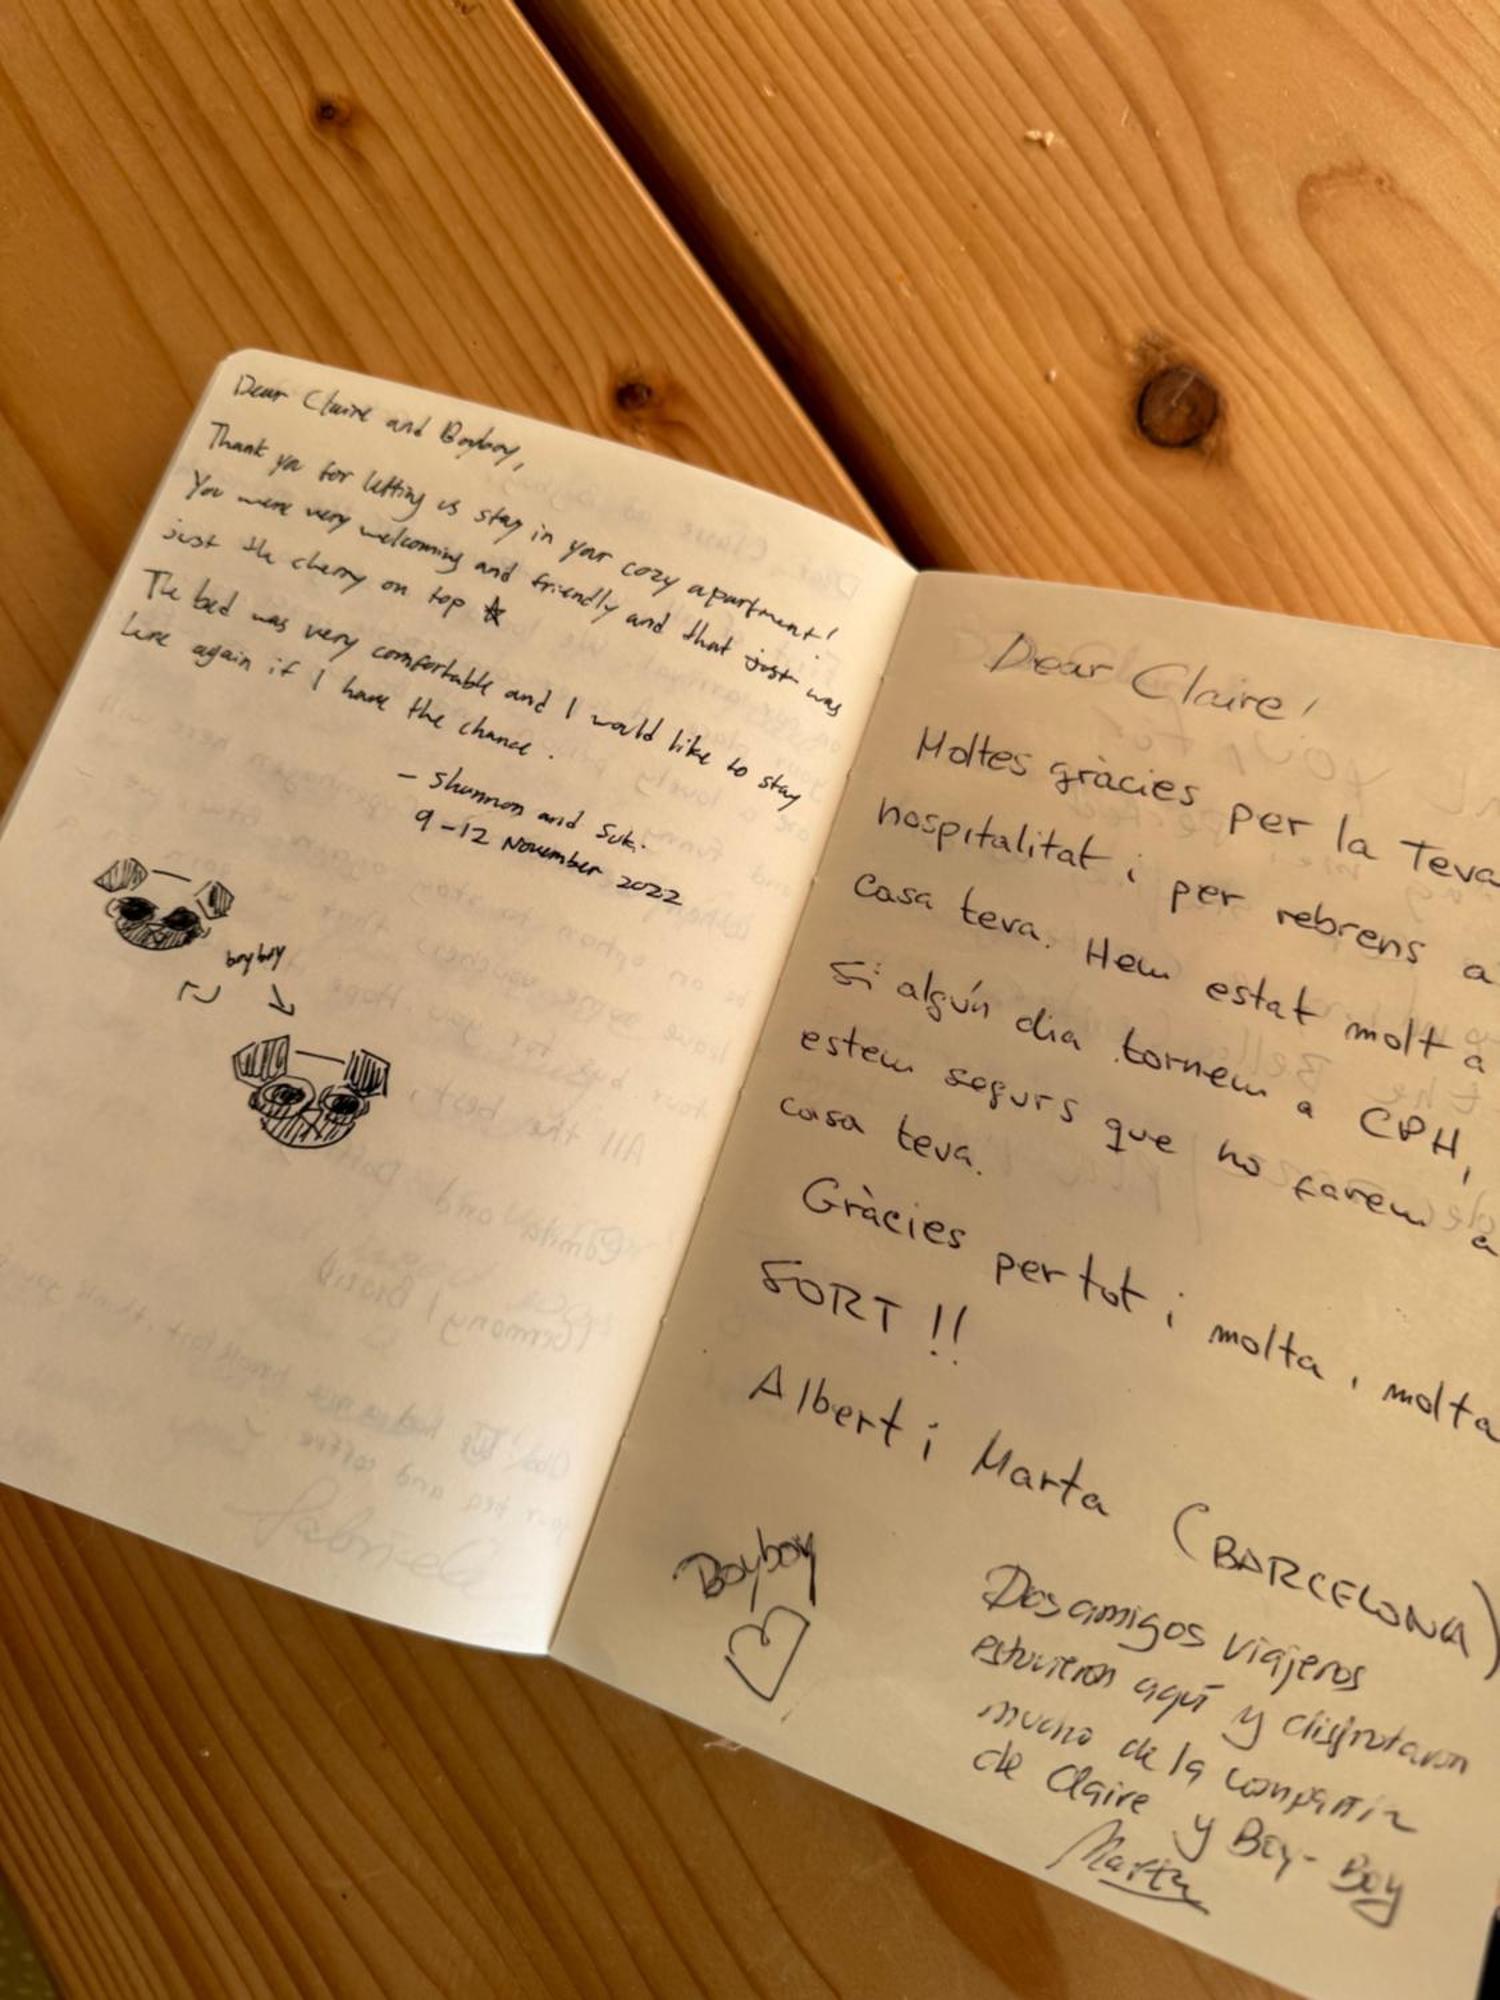 Dear Claire and Boyboy,
Thank you for letting us stay in your cozy apartment!
You were very welcoming and friendly and that just was
just the cherry on top
The bed was very comfortable and I would like to stay
here again if I have the chance.
- Shannon and Suki
9-12 November 2022
boyboy
Dear Claire!
Moltes gràcies per la Teva
hospitalitat i per rebrens a
casa teva. Hem estat molt a
Si algún dia tornem a CPH,
estem segurs que ho farem a
casa teva.
Gràcies per tot i molta, molta
SORT!!
Albert i Marta (BARCELONA)
Boyboy
Dos amigos viajeros
estuvieron aquí y disfrutaron
mucho de la
de Claire y Boy-Boy